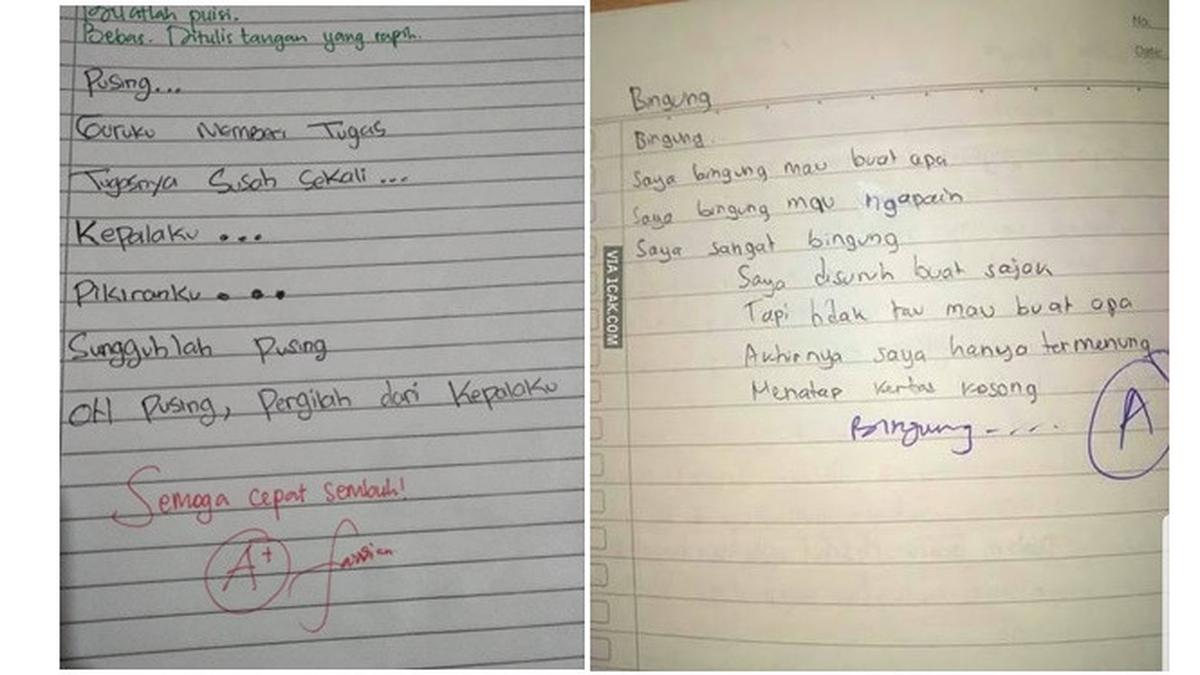 Buatlah puisi.
Bebas. Ditulis tangan yang rapih.
Pusing...
Guruku Memberi Tugas
Tugasnya Susah Sekali...
Kepalaku...
Pikiranku...
Sungguhlah Pusing
OH Pusing, Pergilah dari Kepalaku
Semoga cepat sembuh!
A+
No.
Date:
Bingung
Bingung.
Saya bingung mau buat apa
Saya bingung mau ngapain
Saya sangat bingung
Saya disuruh buat sajak
Tapi tidak tau mau buat apa
Akhirnya saya hanya termenung
Menatap kertas kosong
Bingung - ....
A
VIA 1CAK.COM